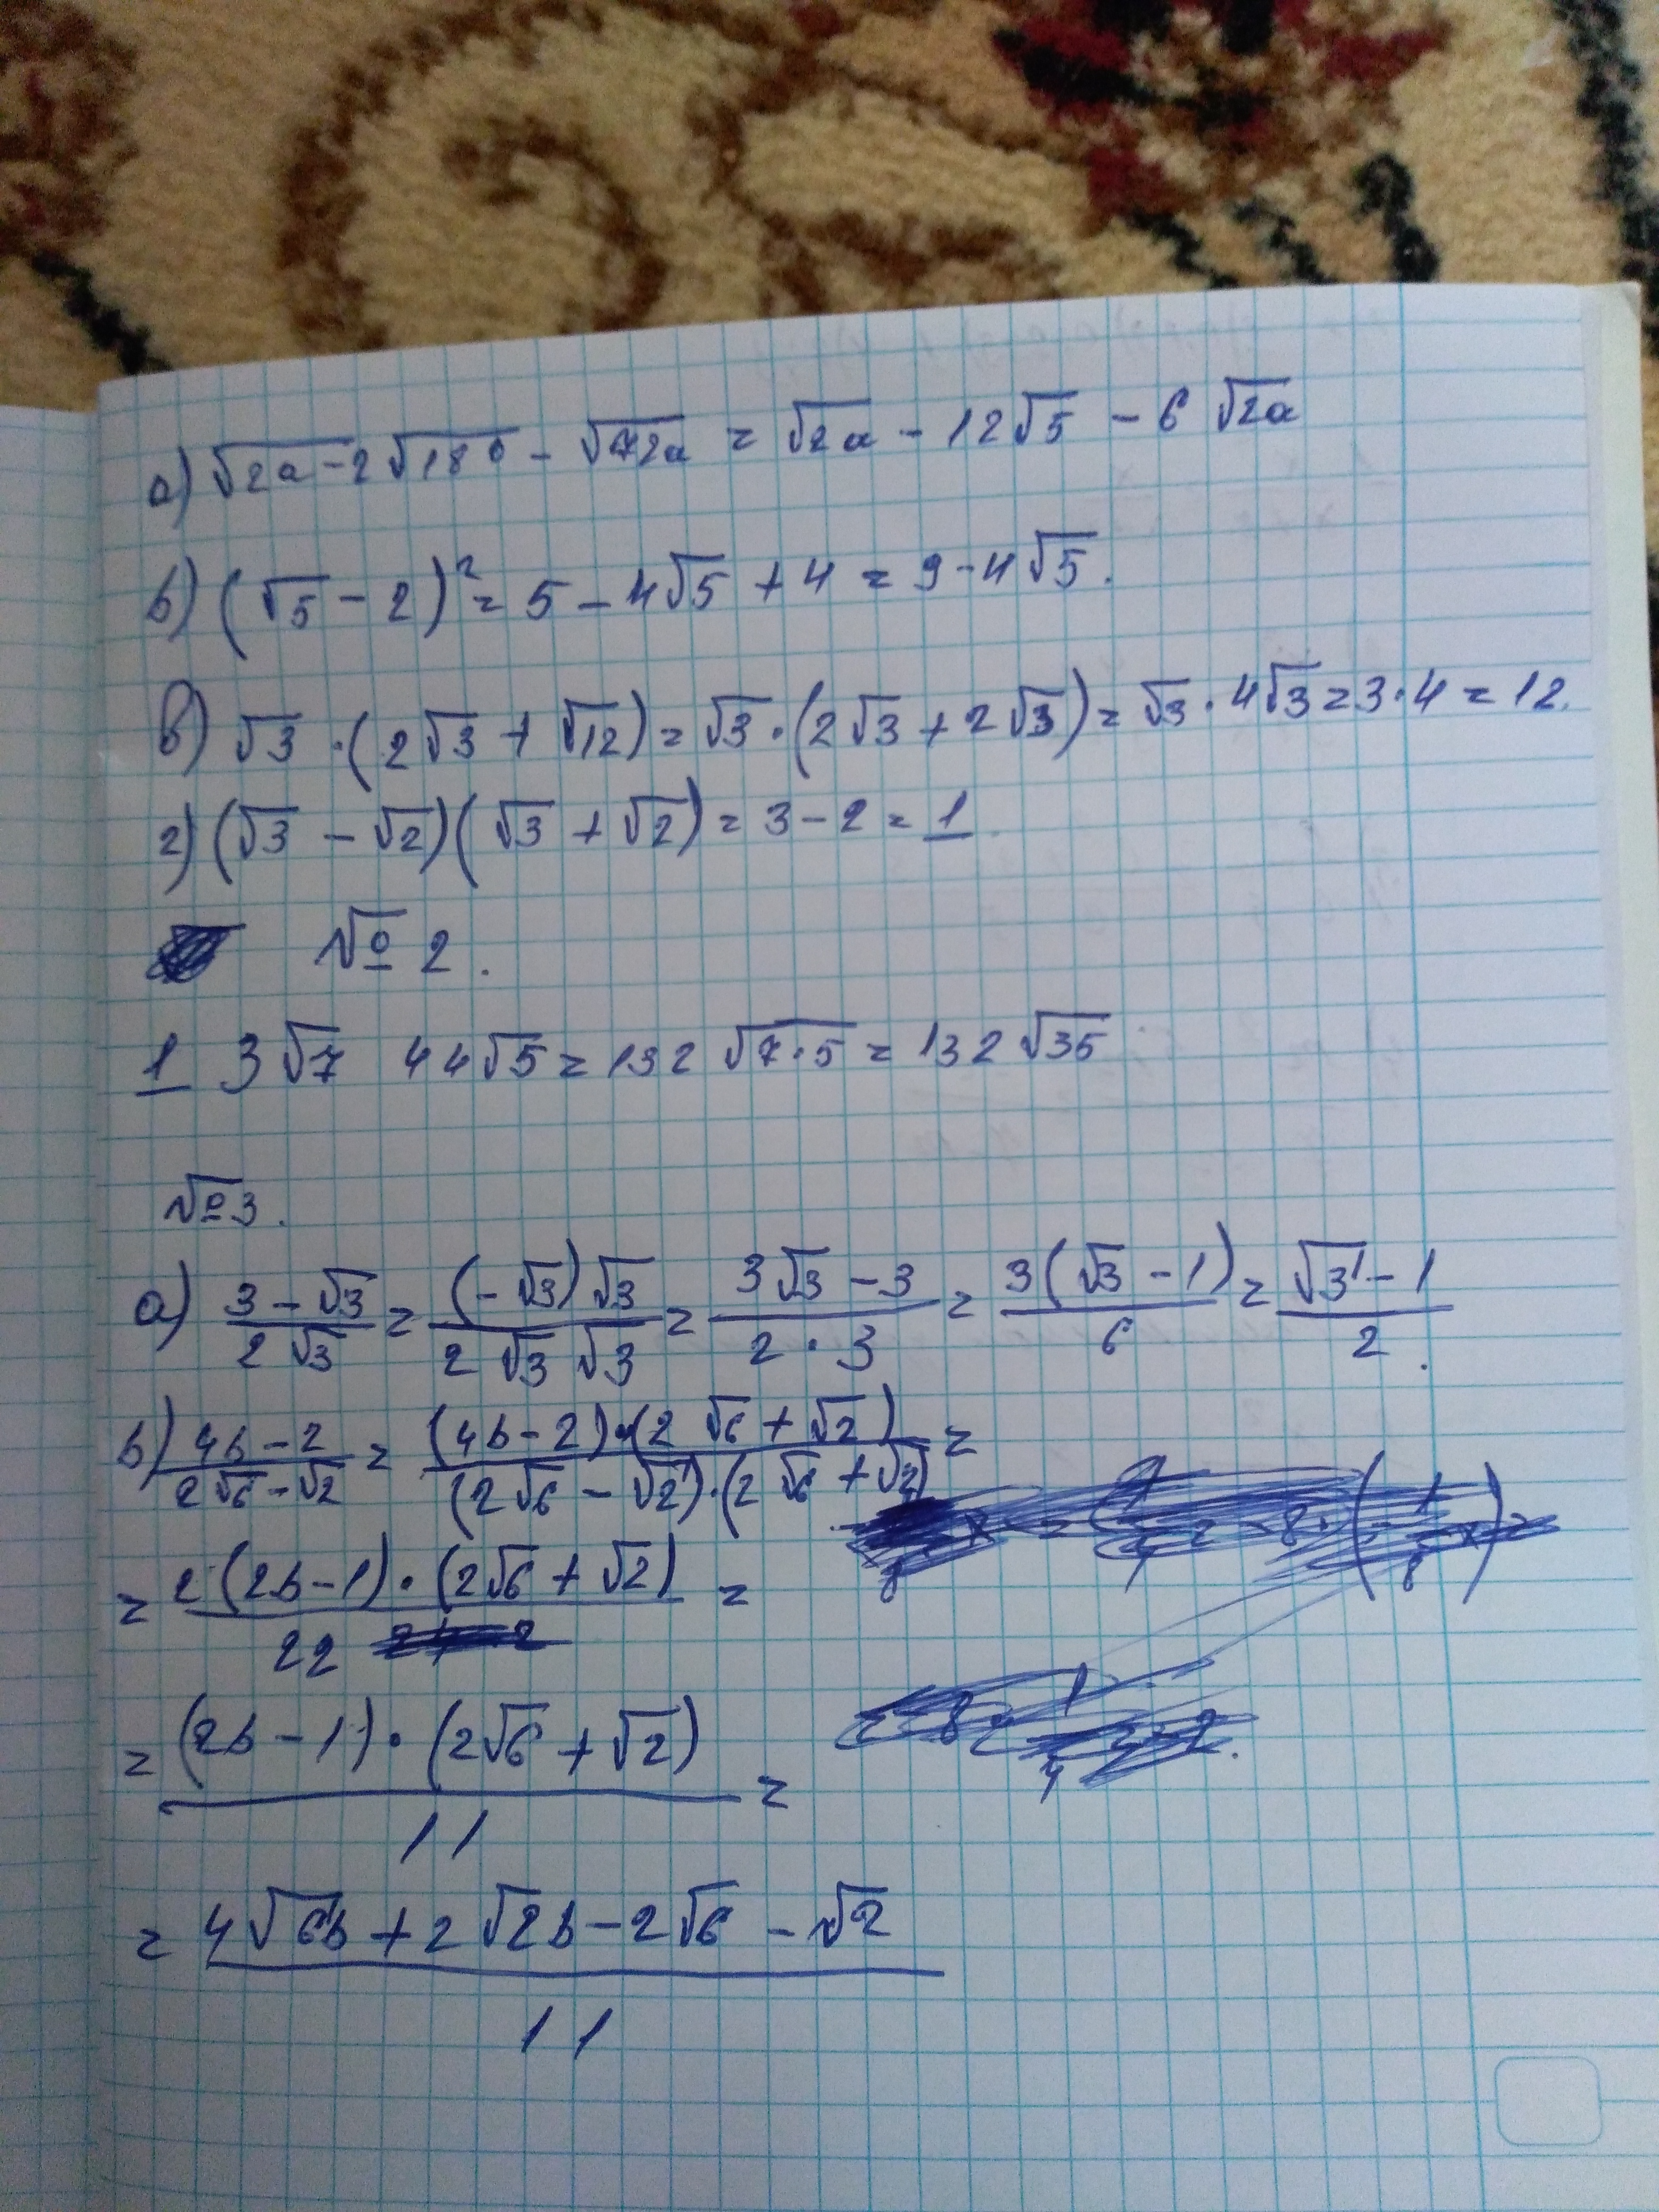 а) √2a-2√180 - √72a = √2a - 12√5 - 6 √2a
б) (√5 - 2)² = 5 - 4√5 + 4 = 9-4√5.
в) √3 ·(2√3 + √12) = √3·(2√3 + 2√3) = √3·4√3=3·4=12.
г) (√3 - √2)(√3 + √2) = 3-2 = 1
№ 2.
1 3√7 44√5 = 132 √7·5 = 132√35
№3.
а) (3-√3)/(2√3) = ((-√3)√3)/(2√3 √3) = (3√3-3)/(2·3) = (3(√3-1))/6 = (√3-1)/2.
б) (4b-2)/(2√6-√2) = ((4b-2)·(2√6+√2))/((2√6-√2)·(2√6+√2)) =
= (2(2b-1)·(2√6+√2))/22 =
= ((2b-1)·(2√6+√2))/11 =
= (4√6b+2√2b-2√6-√2)/11